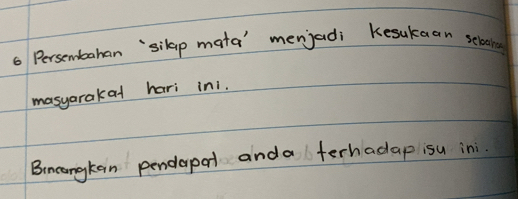 6 Persembahan 'silap mata' menjadi kesukaan
masyarakat hari ini.
Bincangkan pendapat anda terhadap isu ini.